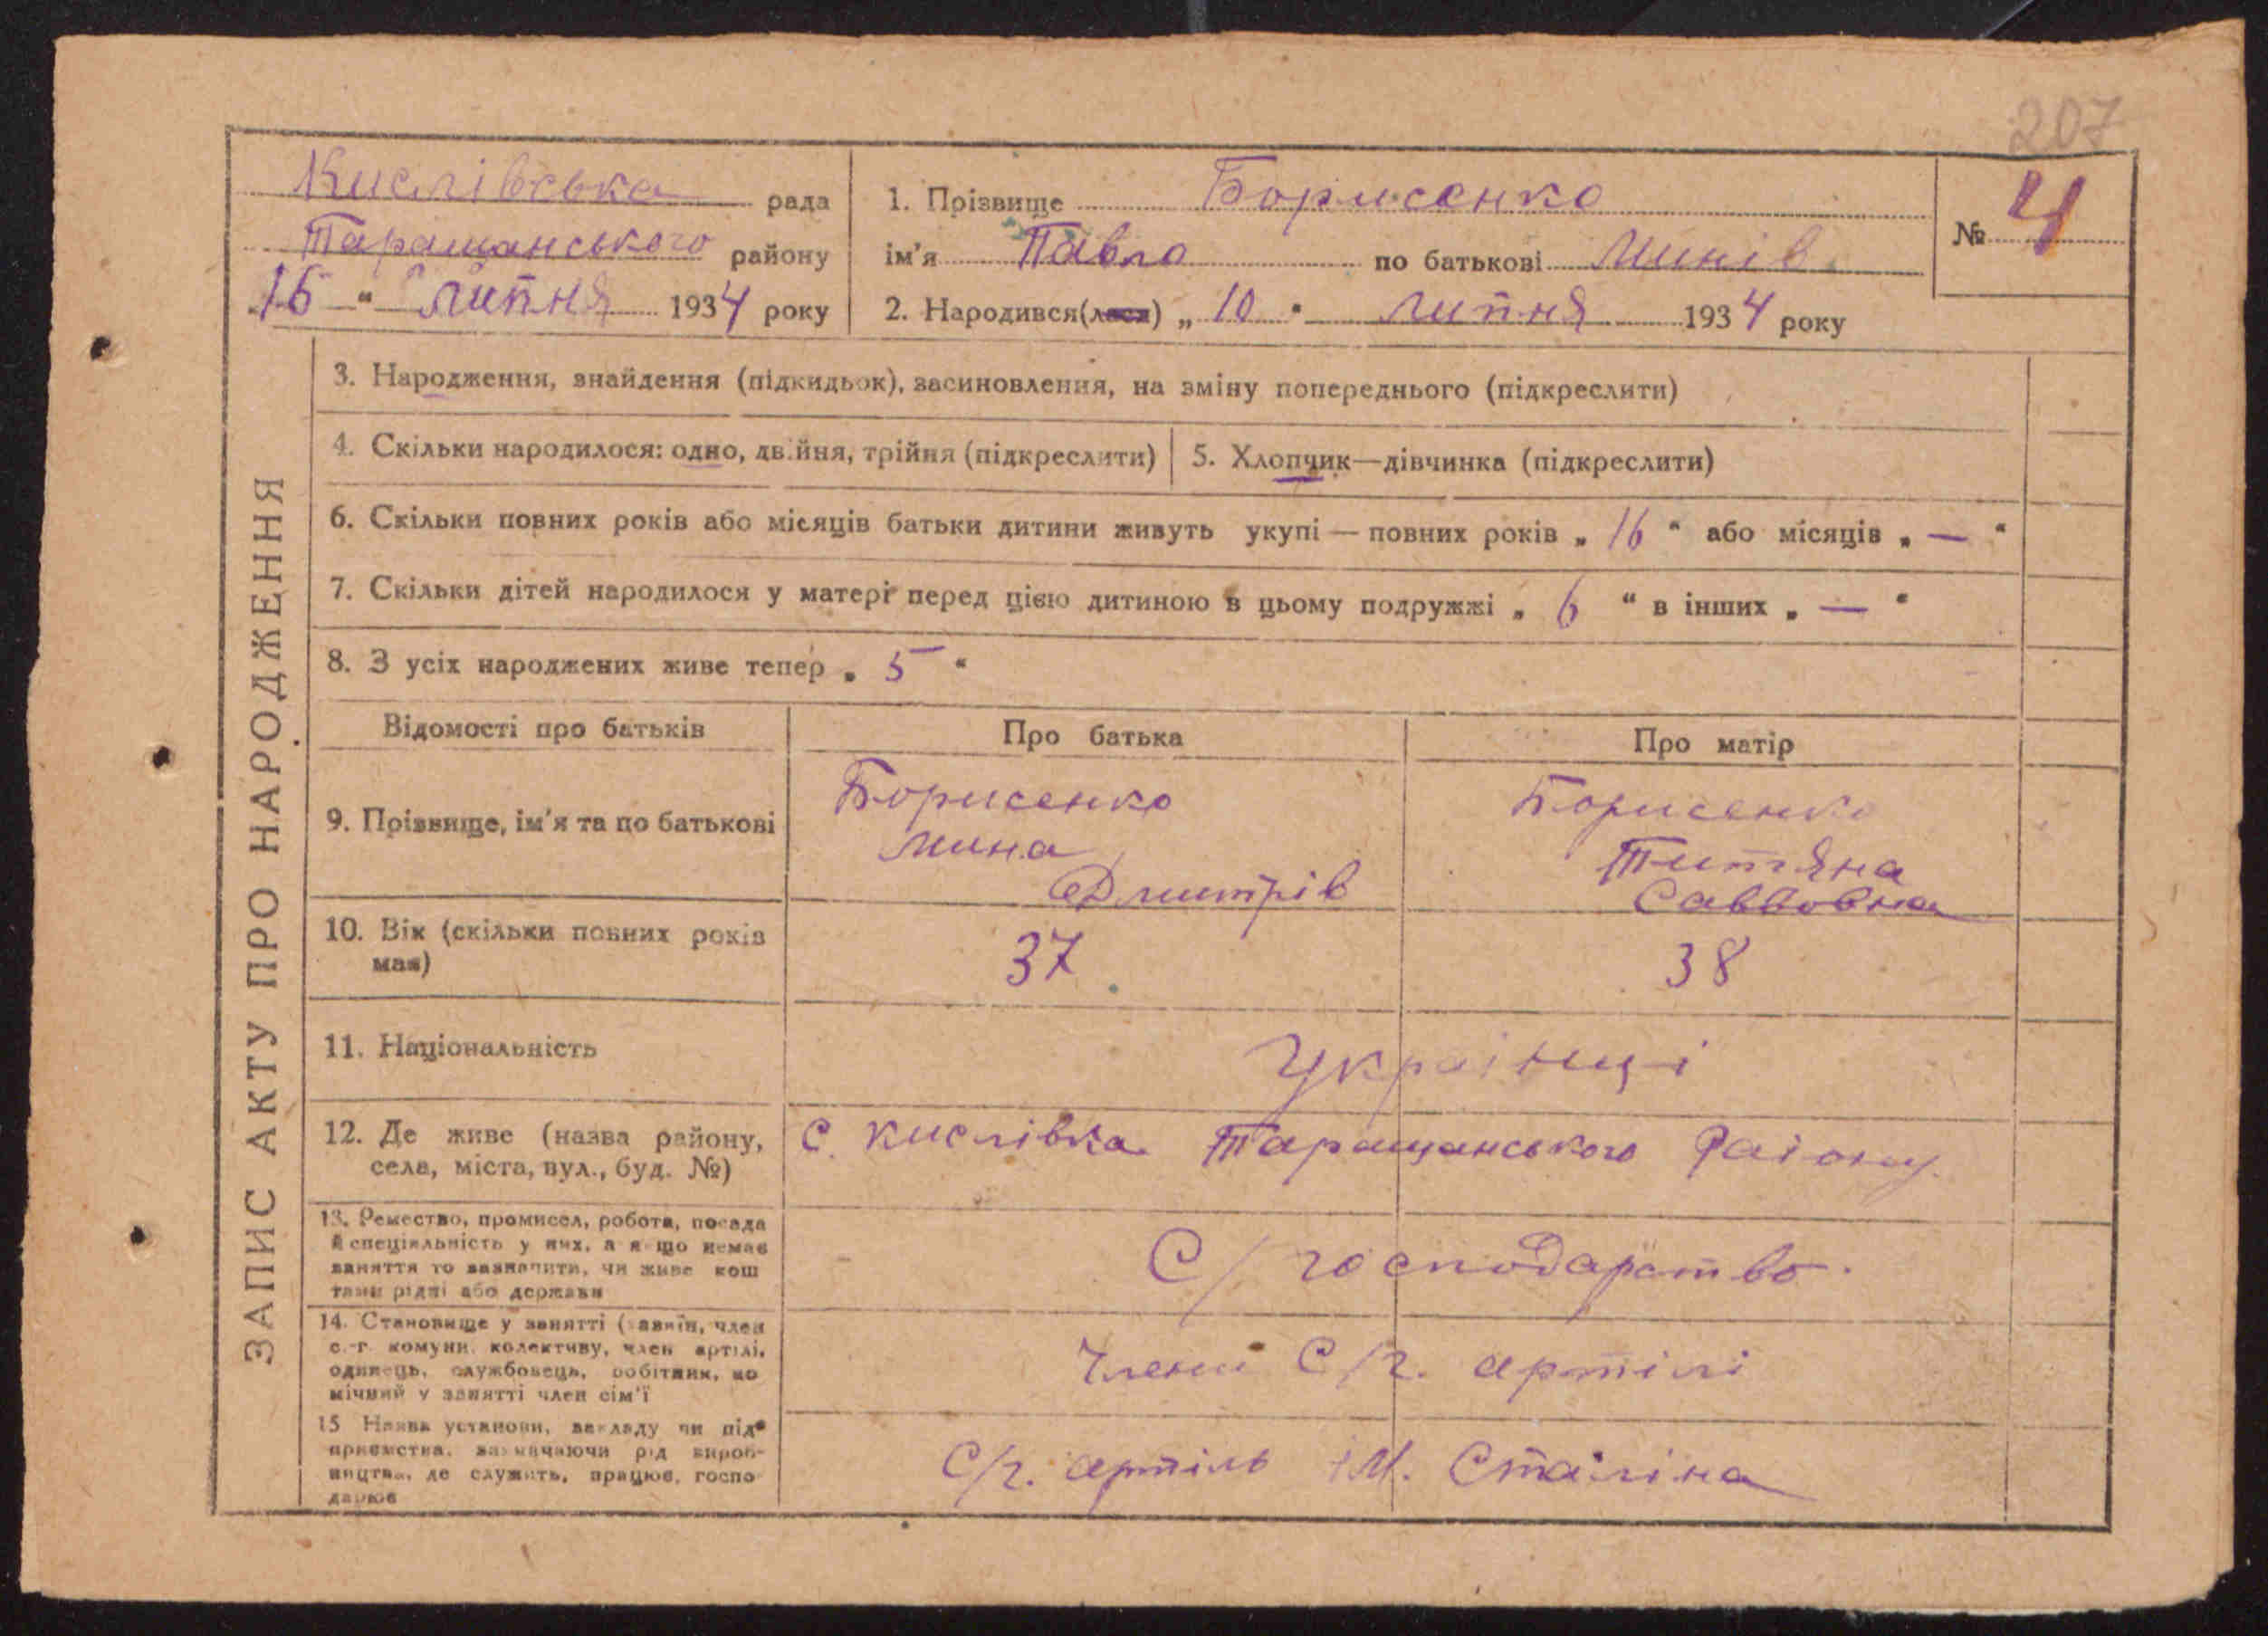 207
Кислівська рада
Таращанського району
16 " липня 1934 року
1. Прізвище Борисенко
ім'я Павло по батькові Минів
2. Народився(лася) „ 10 " липня 1934 року
№ 4
ЗАПИС АКТУ ПРО НАРОДЖЕННЯ
3. Народження, знайдення (підкидьок), засиновлення, на зміну попереднього (підкреслити)
4. Скільки народилося: одно, двійня, трійня (підкреслити)
5. Хлопчик—дівчинка (підкреслити)
6. Скільки повних років або місяців батьки дитини живуть укупі — повних років „ 16 " або місяців „ — "
7. Скільки дітей народилося у матері перед цією дитиною в цьому подружжі „ 6 " в інших „ — "
8. З усіх народжених живе тепер „ 5 "
Відомості про батьків
Про батька
Про матір
9. Прізвище, ім'я та по батькові
Борисенко
Мина
Дмитрів
Борисенко
Титяна
Саввовна
10. Вік (скільки повних років
має)
37
38
11. Національність
Українці
12. Де живе (назва району,
села, міста, вул., буд. №)
с. Кислівка Таращанського Району
13. Ремество, промисел, робота, посада
й спеціяльність у них, а якщо немає
заняття то зазначити, чи живе кош
тами рідні або держави
С/господарство.
14. Становище у занятті (хазяїн, член
с.-г. комуни, колективу, член артілі,
одинець, службовець, робітник, по
мічний у занятті член сім'ї
Члени С/г. артілі
15 Назва установи, закладу чи під
приємства, зазначаючи рід вироб-
ництва, де служить, працює, госпо
дарює
С/г. артіль ім. Сталіна